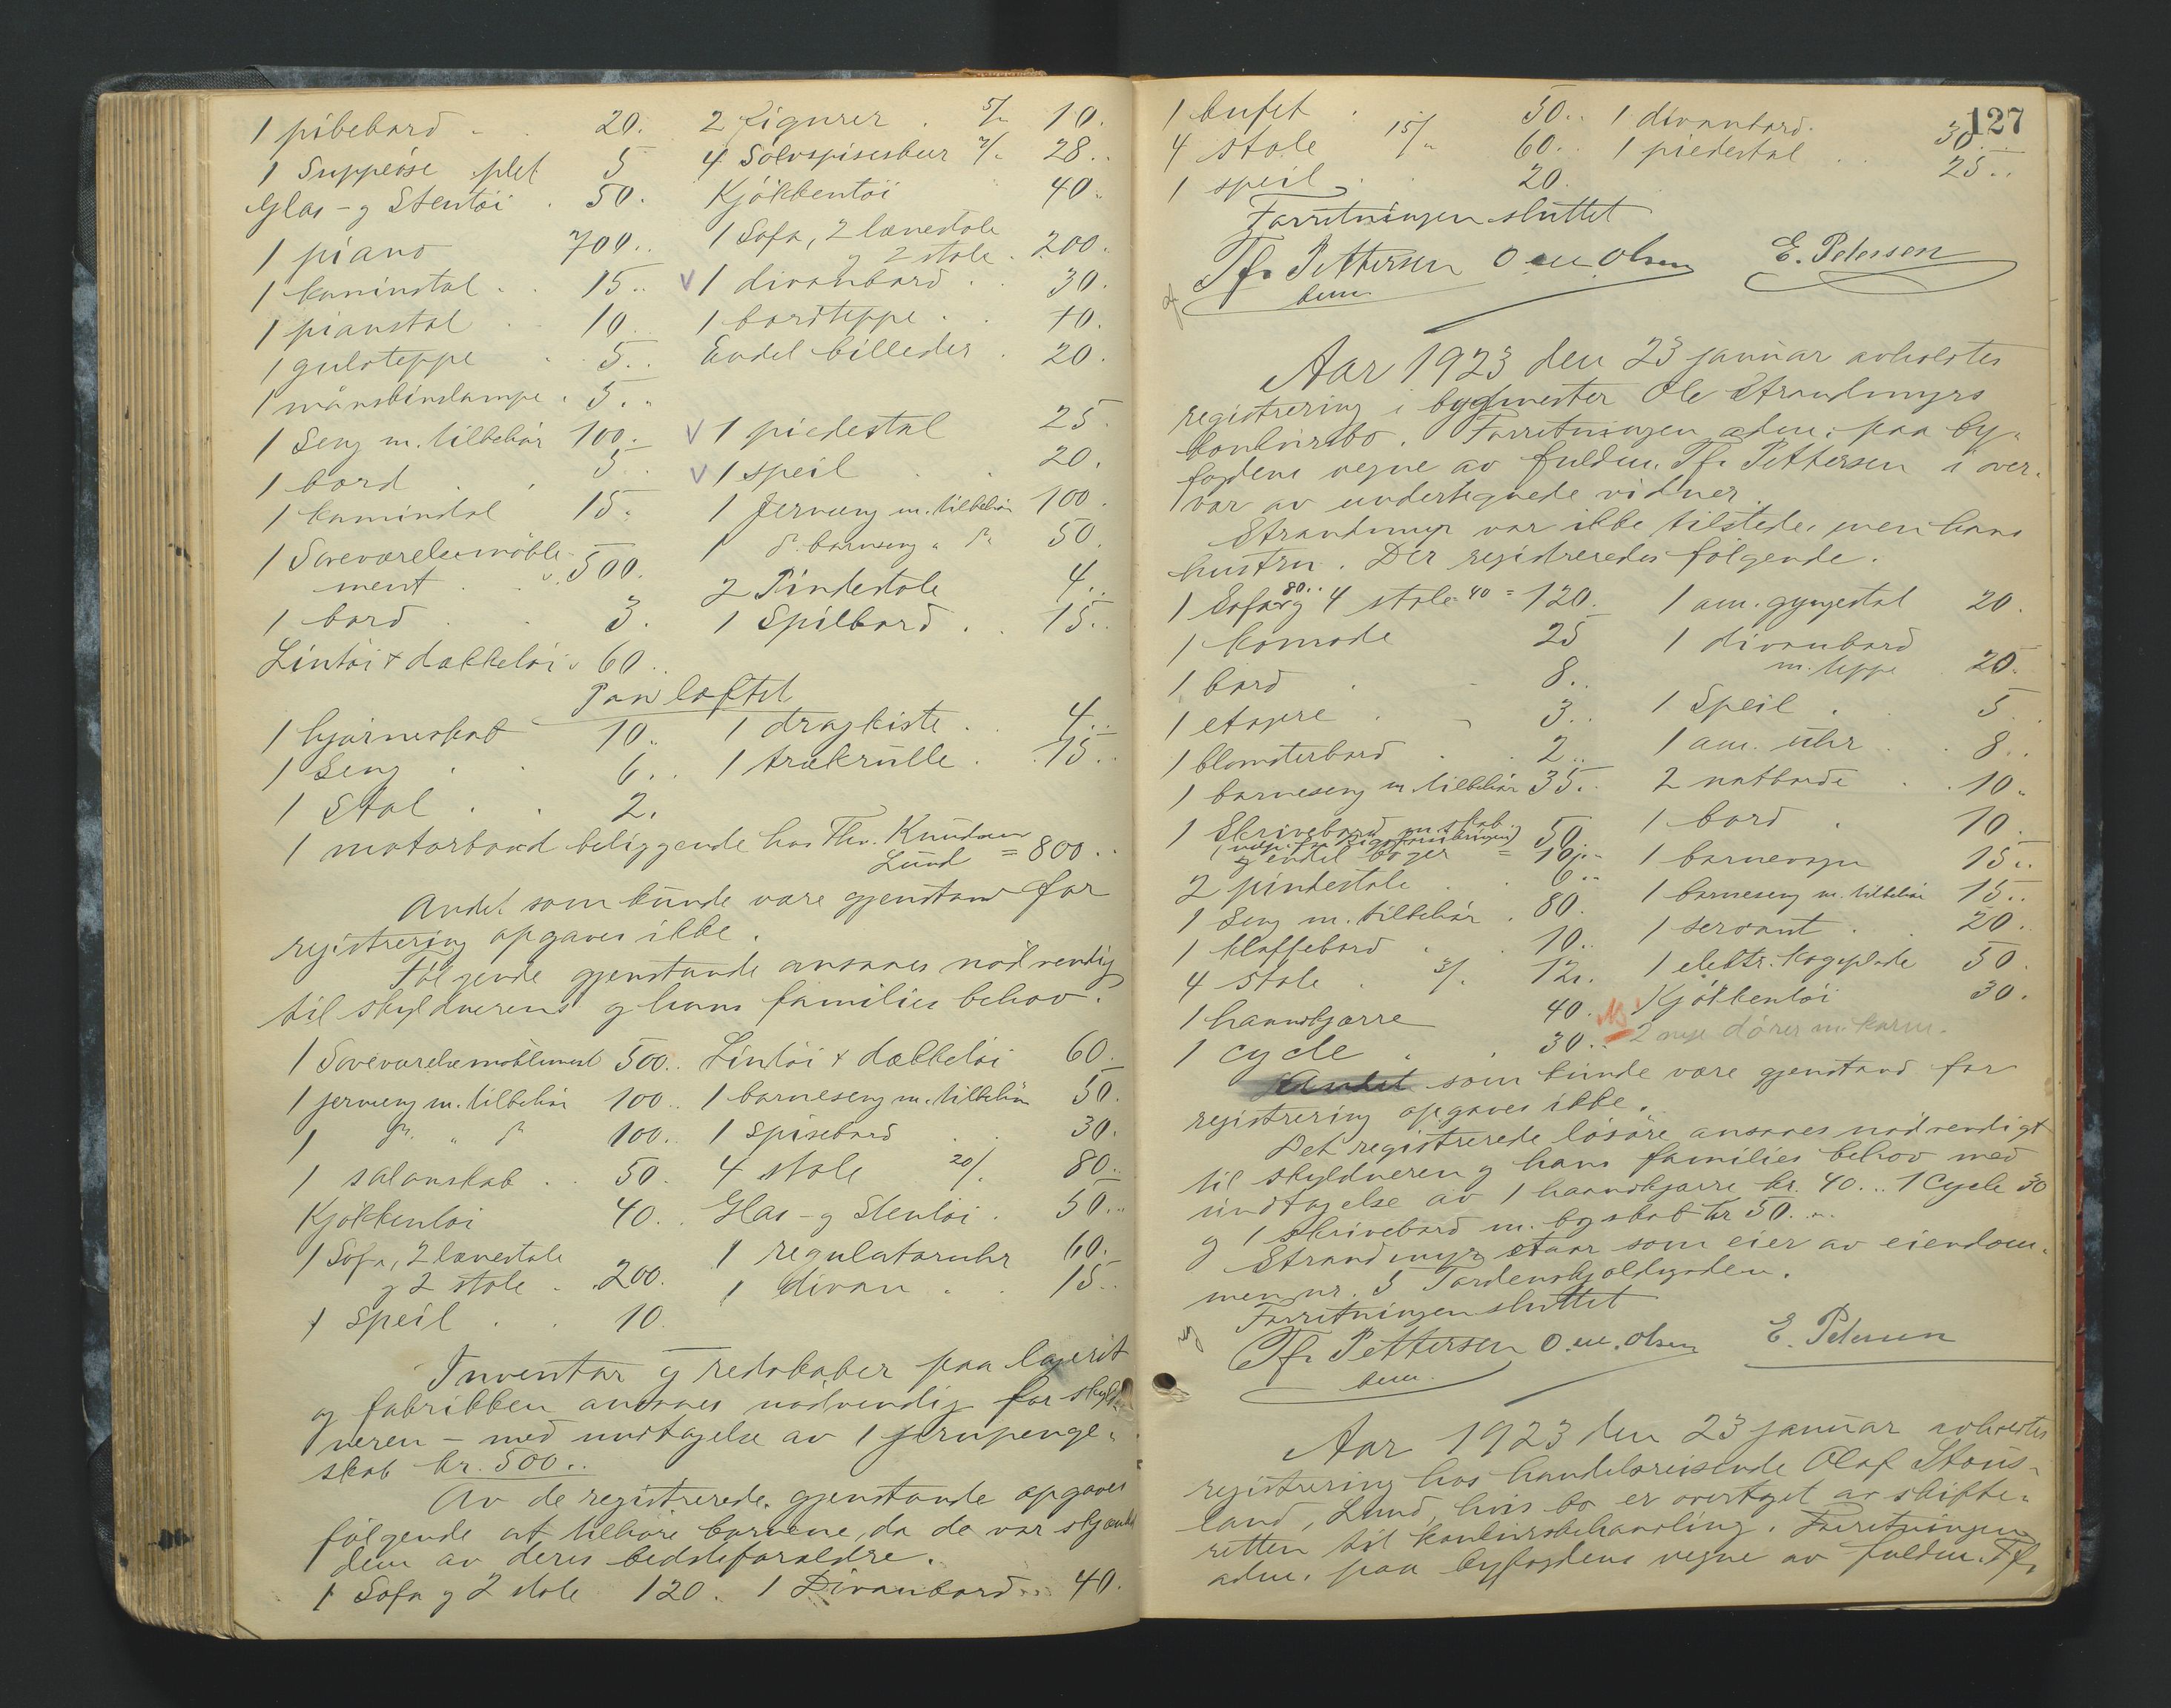 1 pibebord . . 20. 2 Figurer . 5/- 10.
1 Suppeöse plet 5 4 Sølvspiseskeer 7/- 28..
Glas- og Stentöi . 50. Kjökkentöi 40.
1 piano 700.. 1 Sofa, 2 lænestole
og 2 stole . 200.
1 kaminstol . . 15.. V 1 divanbord . . 30.
1 pianstol . 10. 1 bordteppe . . 10.
1 gulvteppe . . 5.. Endel billeder . 20.
1 måneskinslampe . 5..
1 Seng m. tilbehör 100. V 1 piedestal 25.
1 bord . . 5.. V 1 speil . . 20.
1 kaminstol 15. 1 Jernseng m. tilbehör 100.
1 Soveværelsesmöble- 1 do. barneseng " do. 50.
ment . . 500. 2 Pindestole 4..
1 bord . . 3. 1 Spilbord . . 15..
Lintöi + dækketöi . 60.
Paa loftet
1 hjörneskab 10. 1 dragkiste . . 4..
1 Seng . . 6.. 1 trækrulle . 15..
1 Stol . . 2.
1 motorbaad beliggende hos Thv. Knudsen
Lund = 800..
Andet som kunde være gjenstand for
registrering opgaves ikke.
Fölgende gjenstande ansaaes nödvendig
til skyldnerens og hans families behov.
1 Soveværelsemöblement 500.. Lintöi + dækketöi 60.
1 jernseng m. tilbehör 100.. 1 barneseng m. tilbehör 50.
1 do. " do. 100.. 1 Spisebord . . 30.
1 salonskab . . 50. 4 stole 20/- 80..
Kjökkentöi 40.. Glas- og Stentöi . 50..
1 Sofa, 2 lænestole 1 regulatoruhr 60.
og 2 stole . 200. 1 divan . . 15..
1 speil . . 10.
Inventar og redskaber paa lageret
og fabrikken ansaaes nödvendig for skyld-
neren - med undtagelse av 1 jernpenge-
skab kr. 500..
Av de registrerede gjenstande opgaves
fölgende at tilhöre barnene, da de var skjænket
dem av deres bedsteforældre.
1 Sofa og 2 stole 120. 1 Divanbord . . 40.
127
1 bufet . 50.. 1 divanbord . 30..
4 stole 15/- 60.. 1 piedestal . . 25..
1 speil . . 20.
Forretningen sluttet
Tfr. Pettersen O. M. Olsen E. Petersen
bem.
Aar 1923 den 23 januar avholdtes
registrering i bygmester Ole Strandmyrs
konkursbo. Forretningen adm. paa by-
fogdens vegne av fuldm. Tfr. Pettersen i over-
vær av undertegnede vidner.
Strandmyr var ikke tilstede, men hans
hustru. Der registreredes fölgende.
1 Sofa 80.. og 4 stole 40 = 120. 1 am. gyngestol 20.
1 komode 25 1 divanbord
m. teppe 20.
1 bord . . 8..
1 etagere . . 3.. 1 Speil . . 5..
1 blomsterbord . . 2.. 1 am. uhr . . 8..
1 barneseng m. tilbehör 35.. 2 natborde . . 10.
1 Skrivebord m. skab 50. 1 bord . 10.
og endel böger = 10.- 1 barnevogn 15..
2 pindestole . . 6.. 1 barneseng m. tilbehör 15..
1 Seng m. tilbehör . 80. 1 servant . . 20.
1 klaffebord . . 10.. 1 elektr. kogeplade 50.
4 stole . 3/- 12.. Kjökkentöi 30.
1 haandkjærre 40. 2 nye dörer m. karm.
1 cycle . . 30..
Andet som kunde være gjenstand for
registrering opgaves ikke.
Det registrerede lösöre ansaaes nödvendigt
til skyldneren og hans families behov med
undtagelse av 1 haandkjærre kr. 40... 1 Cycle 30
og 1 skrivebord m. bogskab kr 50...
Strandmyr staar som eier av eiendom-
men nr. 5 Tordenskjoldgaden.
Forretningen sluttet
Tfr. Pettersen O. M. Olsen E. Petersen
bem.
Aar 1923 den 23 januar avholdtes
registrering hos handelsreisende Olaf Staus-
land, Lund, hvis bo er overtaget av skifte-
retten til konkursbehandling. Forretningen
adm. paa byfogdens vegne av fuldm. Tfr.